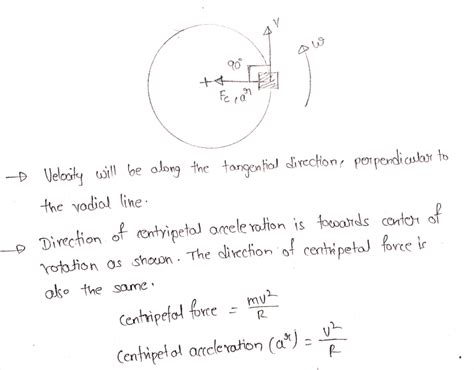 V
ω
90°
+
Fc, aʳ
→ Velocity will be along the tangential direction, perpendicular to
the radial line.
→ Direction of centripetal acceleration is towards center of
rotation as shown. The direction of centripetal force is
also the same.
Centripetal force = mv²/R
Centripetal accleration (aʳ) = v²/R